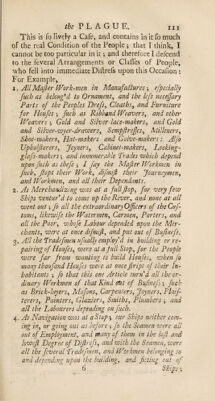 the PLAGUE. 111
This is so lively a Case, and contains in it so much
of the real Condition of the People; that I think, I
cannot be too particular in it; and therefore I descend
to the several Arrangements or Classes of People,
who fell into immediate Distress upon this Occasion:
For Example,
1. All Master Work-men in Manufactures; especially
such as belong'd to Ornament, and the less necessary
Parts of the Peoples Dress, Cloaths, and Furniture
for Houses; such as Riband Weavers, and other
Weavers; Gold and Silver lace-makers, and Gold
and Silver-wyer-drawers, Sempstresses, Milleners,
Shoe-makers, Hat-makers and Glove-makers: Also
Upholsterers, Joyners, Cabinet-makers, Looking-
glass-makers; and innumerable Trades which depend
upon such as these; I say the Master Workmen in
such, stopt their Work, dismist their Journeymen,
and Workmen, and all their Dependants.
2. As Merchandizing was at a full stop, for very few
Ships ventur'd to come up the River, and none at all
went out; so all the extraordinary Officers of the Cus-
toms, likewise the Watermen, Carmen, Porters, and
all the Poor, whose Labour depended upon the Mer-
chants, were at once dismist, and put out of Business.
3. All the Tradesmen usually employ'd in building or re-
pairing of Houses, were at a full Stop, for the People
were far from wanting to build Houses, when so
many thousand Houses were at once stript of their In-
habitants; so that this one Article turn'd all the or-
dinary Workmen of that Kind out of Business; such
as Brick-layers, Masons, Carpenters, Joyners, Plas-
terers, Painters, Glaziers, Smiths, Plumbers; and
all the Labourers depending on such.
4. As Navigation was at a Stop; our Ships neither com-
ing in, or going out as before; so the Seamen were all
out of Employment, and many of them in the last and
lowest Degree of Distress, and with the Seamen, were
all the several Tradesmen, and Workmen belonging to
and depending upon the building, and fitting out of
6 Ships;